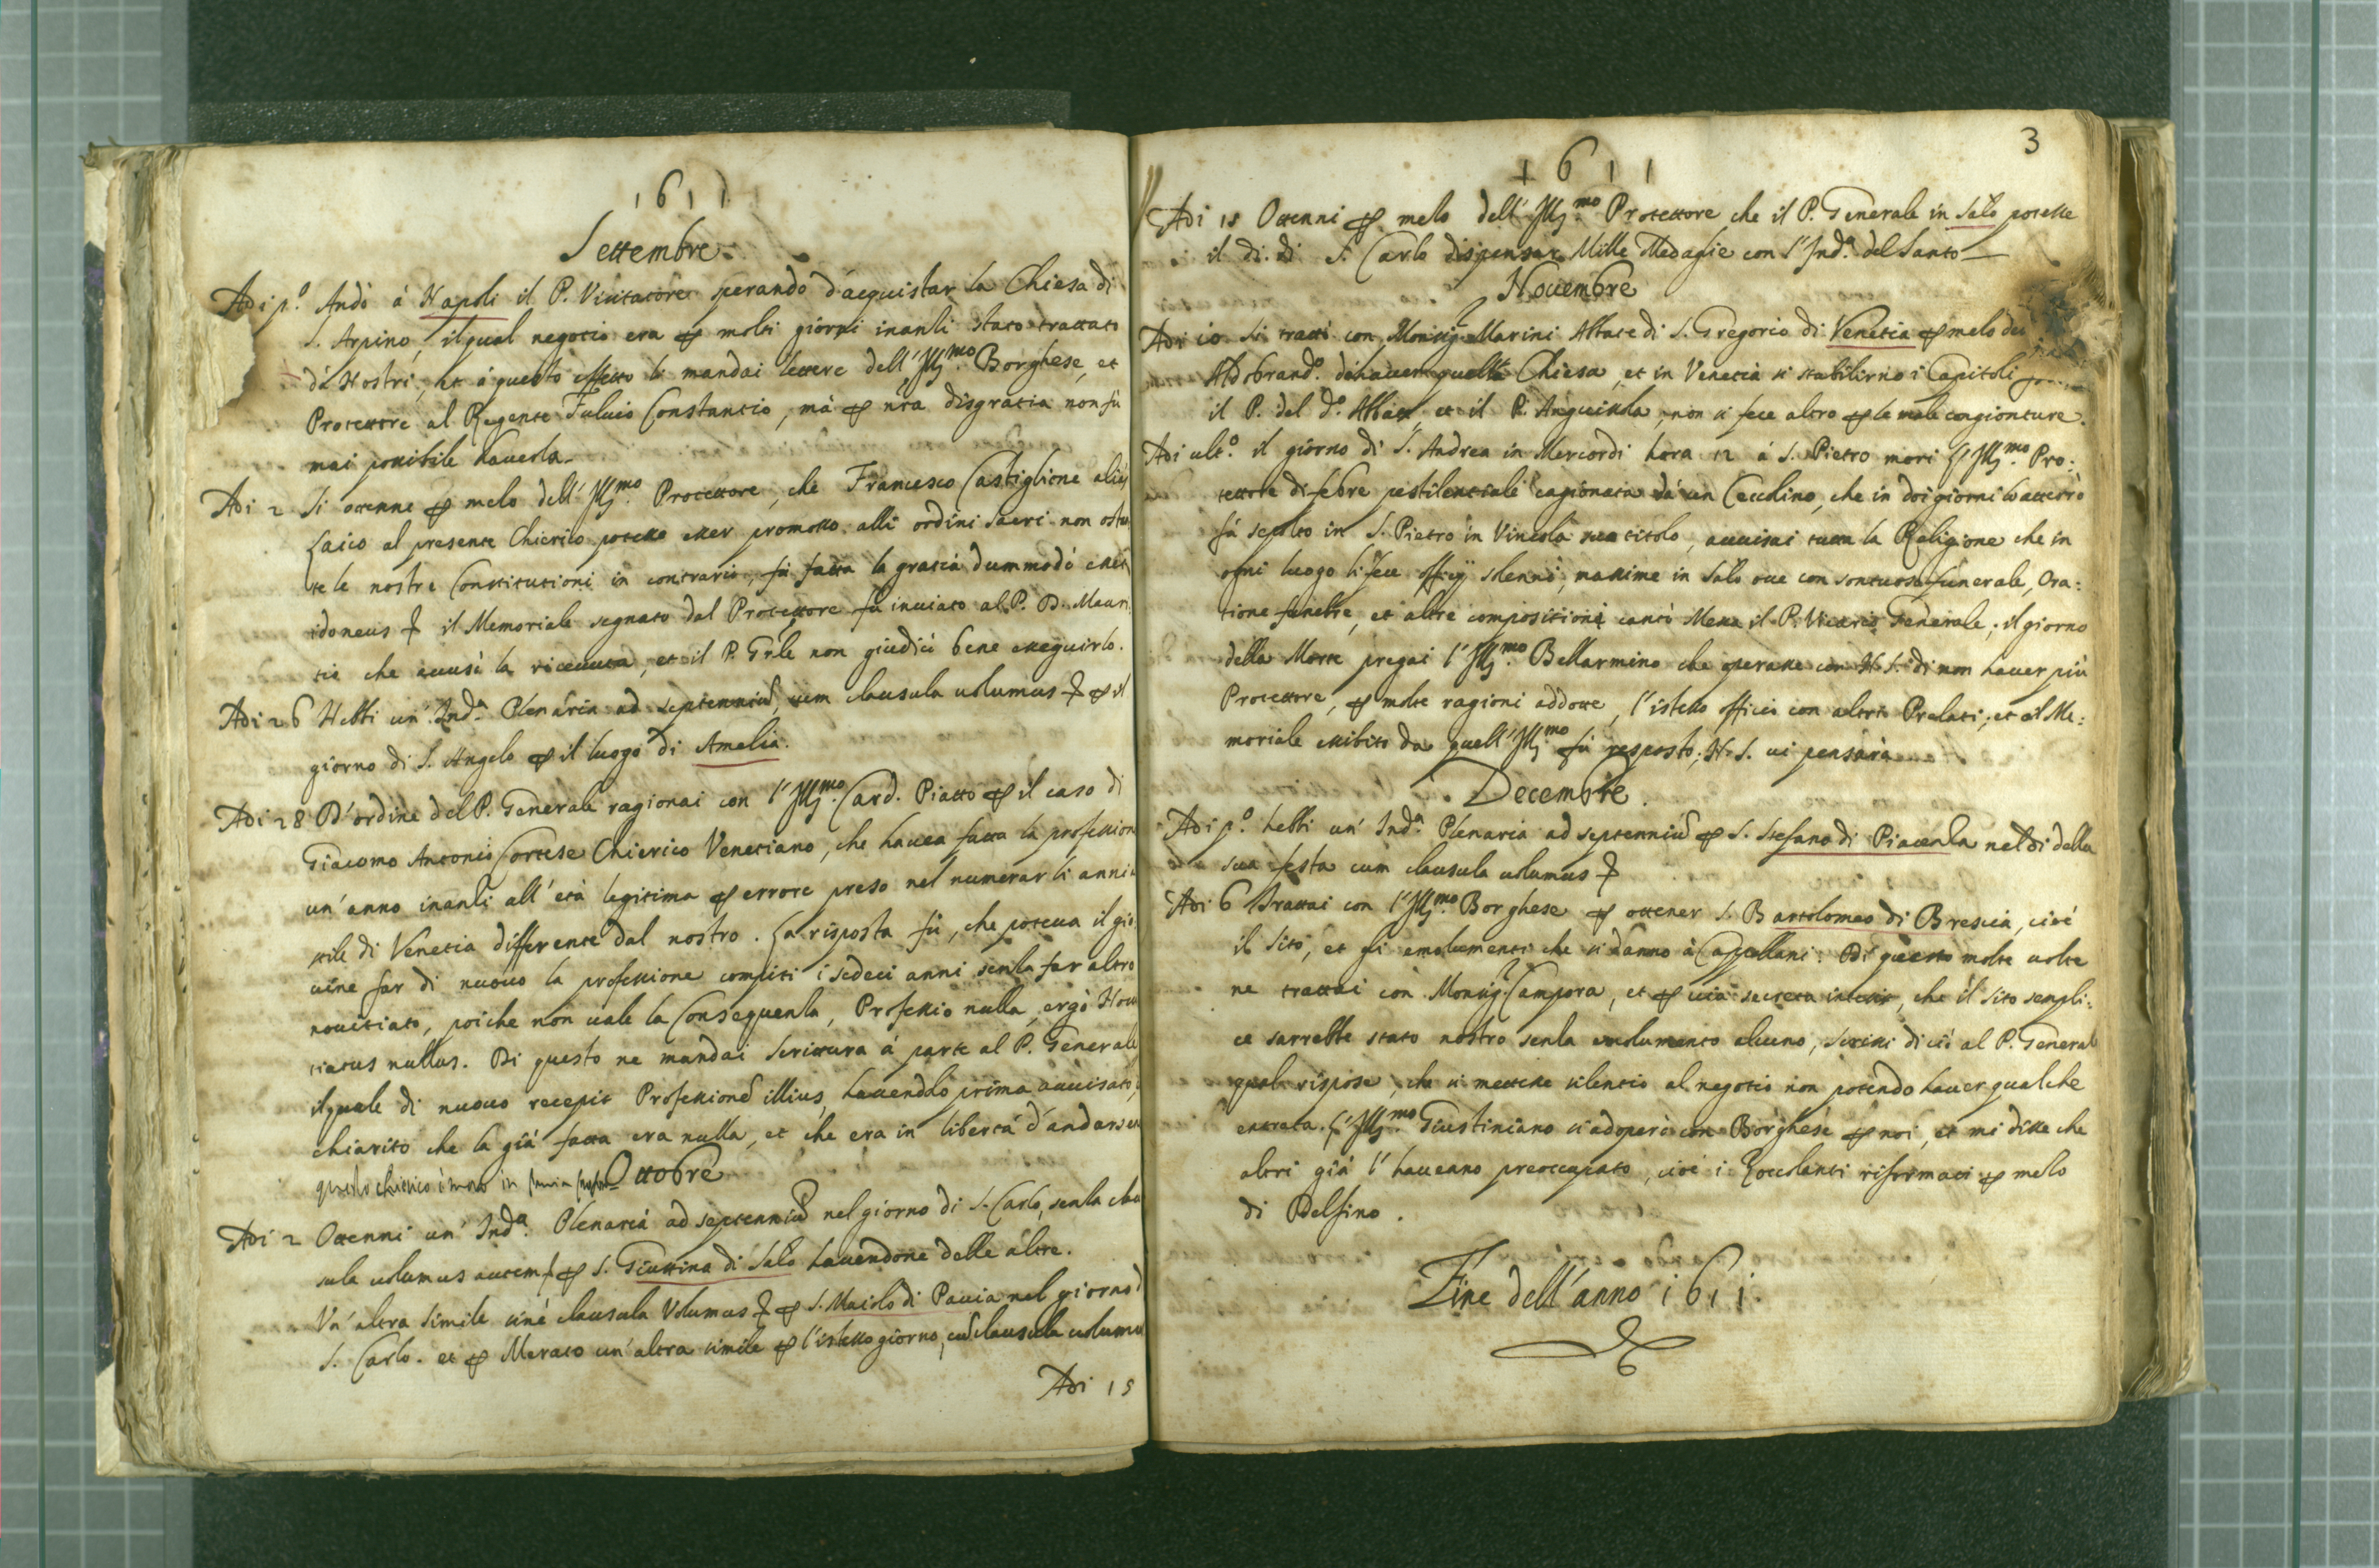 1611
Settembre
Adi p.º Andò à Napoli il P. Visitatore sperando d'acquistar la Chiesa di
S. Arpino, il qual negotio era ꝑ molti giorni inanzi stato trattato
da Nostri, et à questo effetto li mandai lettere dell'Ill.mo Borghese, et
Protettore al Regente Fulvio Constantio, mà ꝑ nrã disgratia non fù
mai possibile haverla.
Adi 2 Si ottenne ꝑ mezo dell'Ill.mo Protettore, che Francesco Castiglione aliàs
Laico al presente Chierico potesse esser promosso alli ordini sacri non ostan
te le nostre Constitutioni in contrario, fù fatta la gratia dummodò esset
idoneus il Memoriale segnato dal Protettore fù inviato al P. D. Mauri
tio che accusò la ricevuta, et il P. Grãle non giudicò bene esseguirlo.
Adi 26 Hebbi un'Ind.ª Plenaria ad septenniũ, cum clausula volumus ꝑ il
giorno di S. Angelo ꝑ il luogo di Amelia.
Adi 28 D'ordine del P. Generale ragionai con l'Ill.mo Card. Piatto ꝑ il caso di
Giacomo Antonio Cortese Chierico Venetiano, che havea fatta la profession
un'anno inanzi all'età legitima ꝑ errore preso nel numerar li anni
stile di Venetia differente dal nostro. La risposta fù, che poteva il gio
vine far di nuovo la professione compiti i sedeci anni senza far altro
novitiato, poiche non vale la Consequenza, Professio nulla, ergò Novi
tiatus nullus. Di questo ne mandai scrittura à parte al P. Generale
il quale di nuovo recepit Professionẽ illius, havendolo prima avvisato,
chiarito che la già fatta era nulla, et che era in libertà d'andarsen
questo chierico è morto in
Ottobre
Adi 2 Ottenni un'Ind.ª Plenaria ad septenniũ nel giorno di S. Carlo, senza clau
sula volumus autem ꝑ S. Giustina di Salò havendone delle altre.
Un'altra simile sinè clausula Volumus ꝑ S. Maiolo di Pavia nel giorno d
S. Carlo. et ꝑ Merate un'altra simile ꝑ l'istesso giorno, cũ clausula volumus
Adi 15
3
1611
Adi 15 Ottenni ꝑ mezo dell'Ill.mo Protettore che il P. Generale in Salò potesse
il dì di S. Carlo dispensar Mille Medaglie con l'Ind.ª del Santo
Novembre
Adi 10 Si trattò con Monsig.r Marini Abbate di S. Gregorio di Venetia ꝑ mezo del
Aldobrand.º d'haver quella Chiesa, et in Venetia si stabilirno i Capitoli
il P. del d.º Abbate et il P. Anguissola, non si fece altro ꝑ le male congionture.
Adi ult.º il giorno di S. Andrea in Mercordi hora 12 à S. Pietro morì l'Ill.mo Pro:
tettore di febre pestilentiale cagionata dà un Ceccolino, che in doi giorni lo atterrò
fù sepolto in S. Pietro in Vincola suo titolo, avvisai tutta la Religione che in
ogni luogo li fece officij solenni, massime in Salò ove con sontuoso funerale, Ora:
tione funebre, et altre compositioni cantò Messa il P. Vicario Generale; il giorno
della Morte pregai l'Ill.mo Bellarmino che operasse con N.S. di non haver più
Protettore, ꝑ molte ragioni addotte, l'istesso officio con altri Prelati; et al Me:
moriale essibito da quell'Ill.mo fù resposto; N.S. vi pensarà
Decembre.
Adi p.º hebbi un'Ind.ª Plenaria ad septenniũ ꝑ S. Stefano di Piacenza nel dì della
sua festa cum clausula volumus
Adi 6 Trattai con l'Ill.mo Borghese ꝑ ottener S. Bartolomeo di Brescia, cioè
il sito, et gli emolumenti che si danno à Capellani. Di questo molte volte
ne trattai con Monsig.r Campora, et ꝑ via secreta intesi, che il sito sempli:
ce sarrebbe stato nostro senza emolumento alcuno, scrissi di ciò al P. General
qual rispose, che si mettesse silentio al negotio non potendo haver qualche
entrata. L'Ill.mo Giustiniano si adoperò con Borghese ꝑ noi, et mi disse che
altri già l'haveano preoccupato, cioè i Zoccolanti riformati ꝑ mezo
di Delfino.
Fine dell'anno 1611.